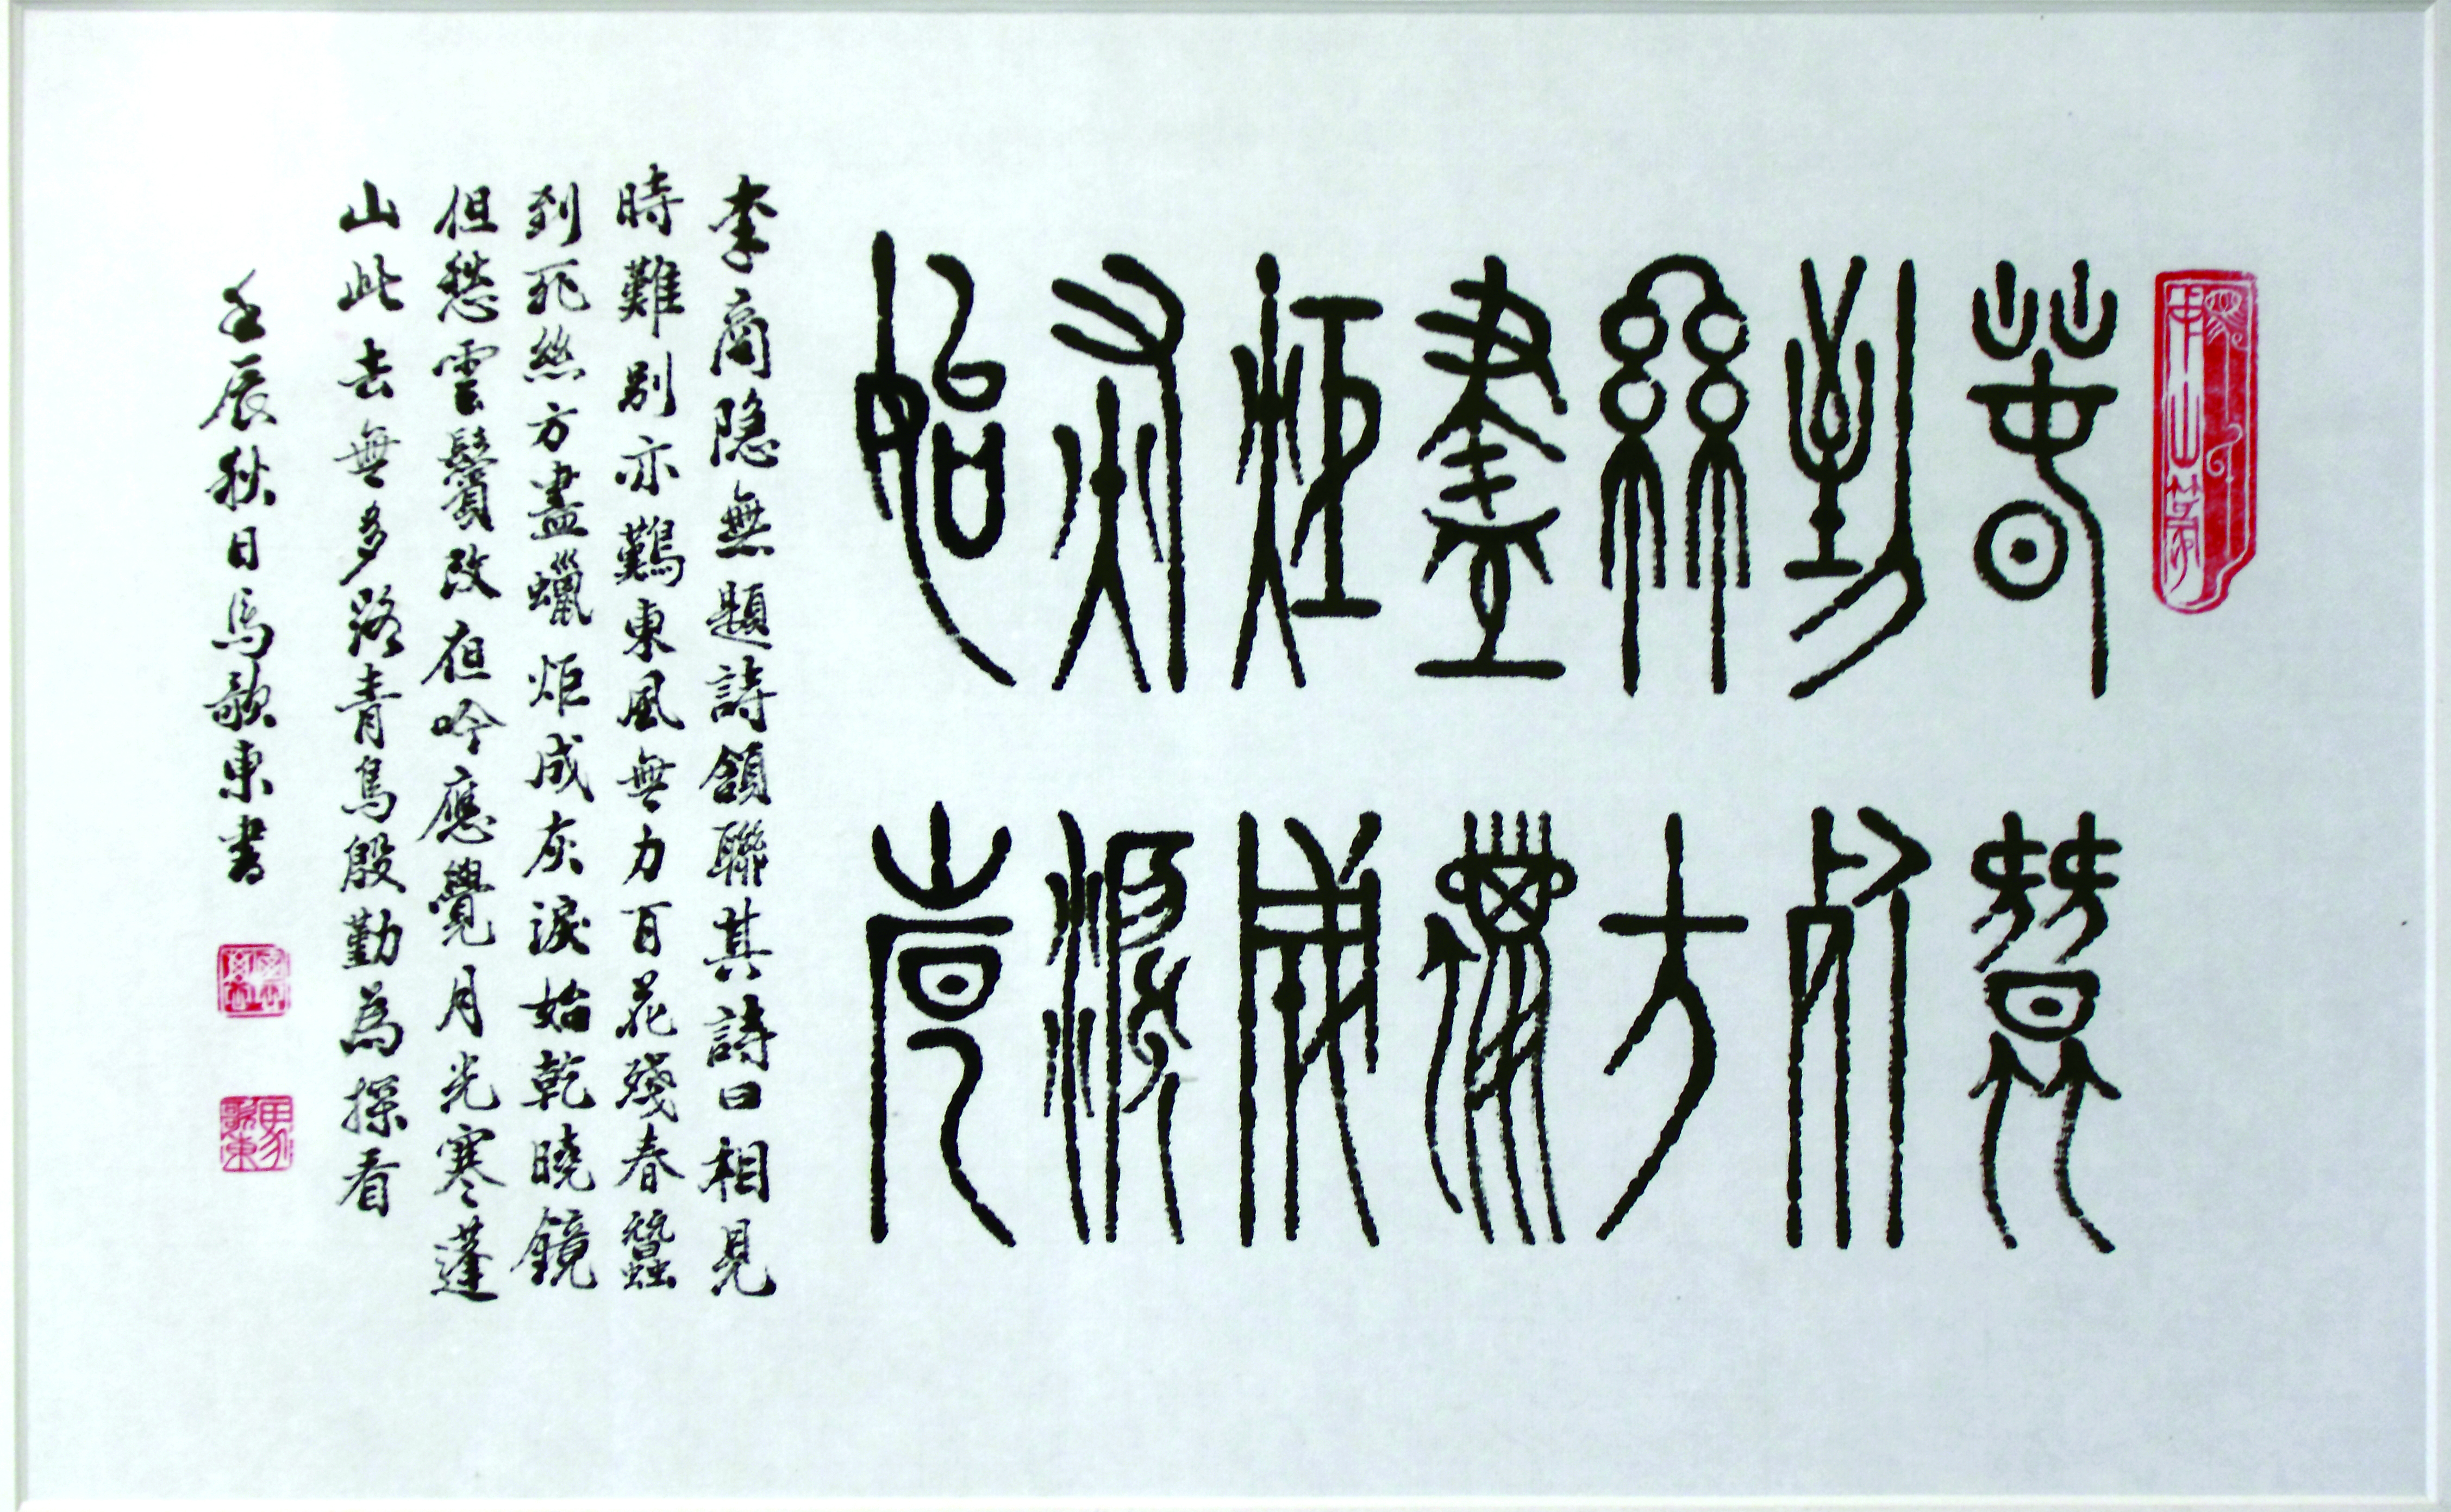 春蠶
到死
絲方
盡蠟
炬成
灰淚
始乾
李商隐無題詩頷聯其詩曰相見
時難別亦難東風無力百花殘春蠶
到死絲方盡蠟炬成灰淚始乾曉鏡
但愁雲鬢改夜吟應覺月光寒蓬
山此去無多路青鳥殷勤為探看
壬辰秋日馬歌東書
馬歌東